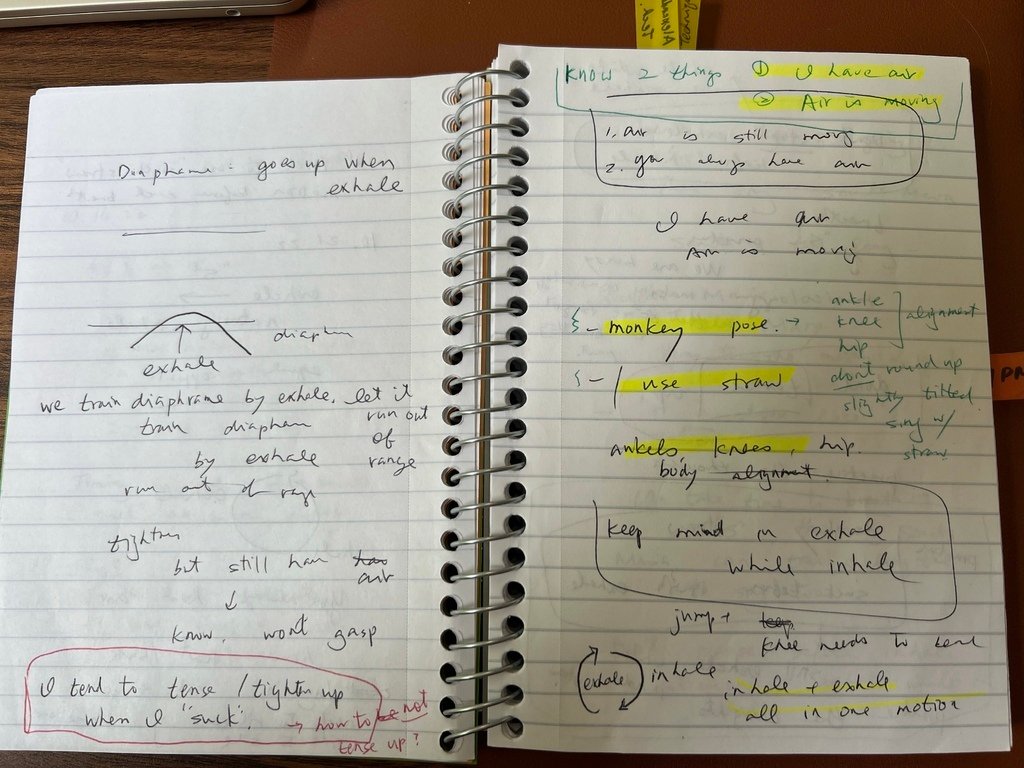 Diaphrame : goes up when
exhale
diaphm
exhale
we train diaphrame by exhale. let it
run out
of
range
train diapham
by exhale
run out of rage
tighten
but still have
air
↓
know. won't gasp
I tend to tense / tighten up
when I "suck".
→ how to not
tense up?
know 2 things ① I have air
② Air is moving
1. air is still movig
2. you always have air
I have air
Air is movig
- monkey pose. → ankle
knee
hip
alignment
- use straw
don't round up
slightly tilted.
sing w/
straw
ankels, knees, hip.
body alignment.
keep mind in exhale
while inhale
jump +
knee needs to bend
exhale
inhale
inhale + exhale
all in one motion